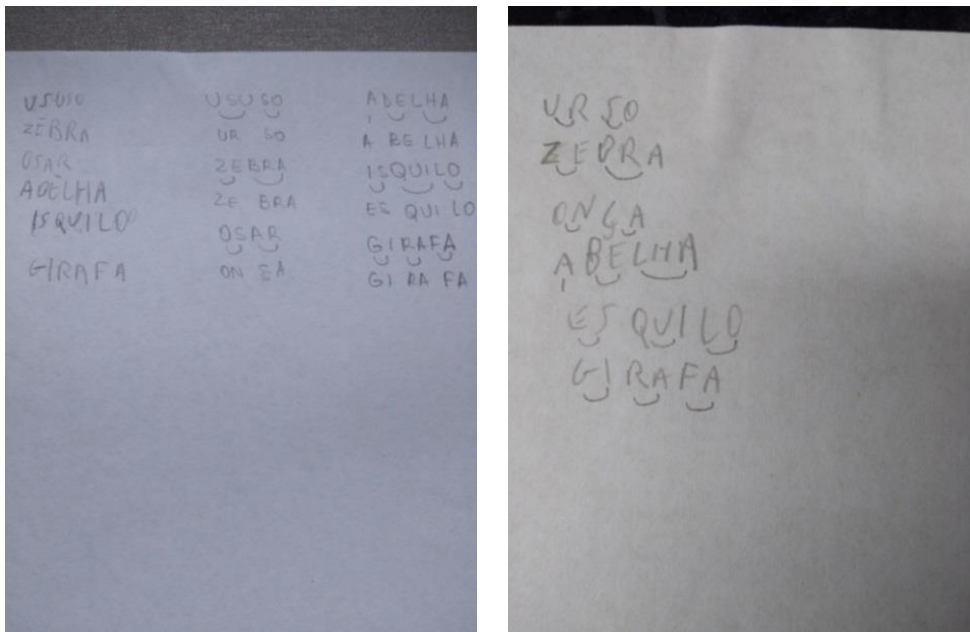 USUSO
ZEBRA
OSAR
ADELHA
ISQUILO
GIRAFA
USUSO
UR SO
ZEBRA
ZE BRA
OSAR
ON ÇA
ADELHA
A BE LHA
ISQUILO
ES QUI LO
GIRAFA
GI RA FA
UR SO
ZEBRA
ONÇA
ABELHA
ES QUI LO
GI RA FA